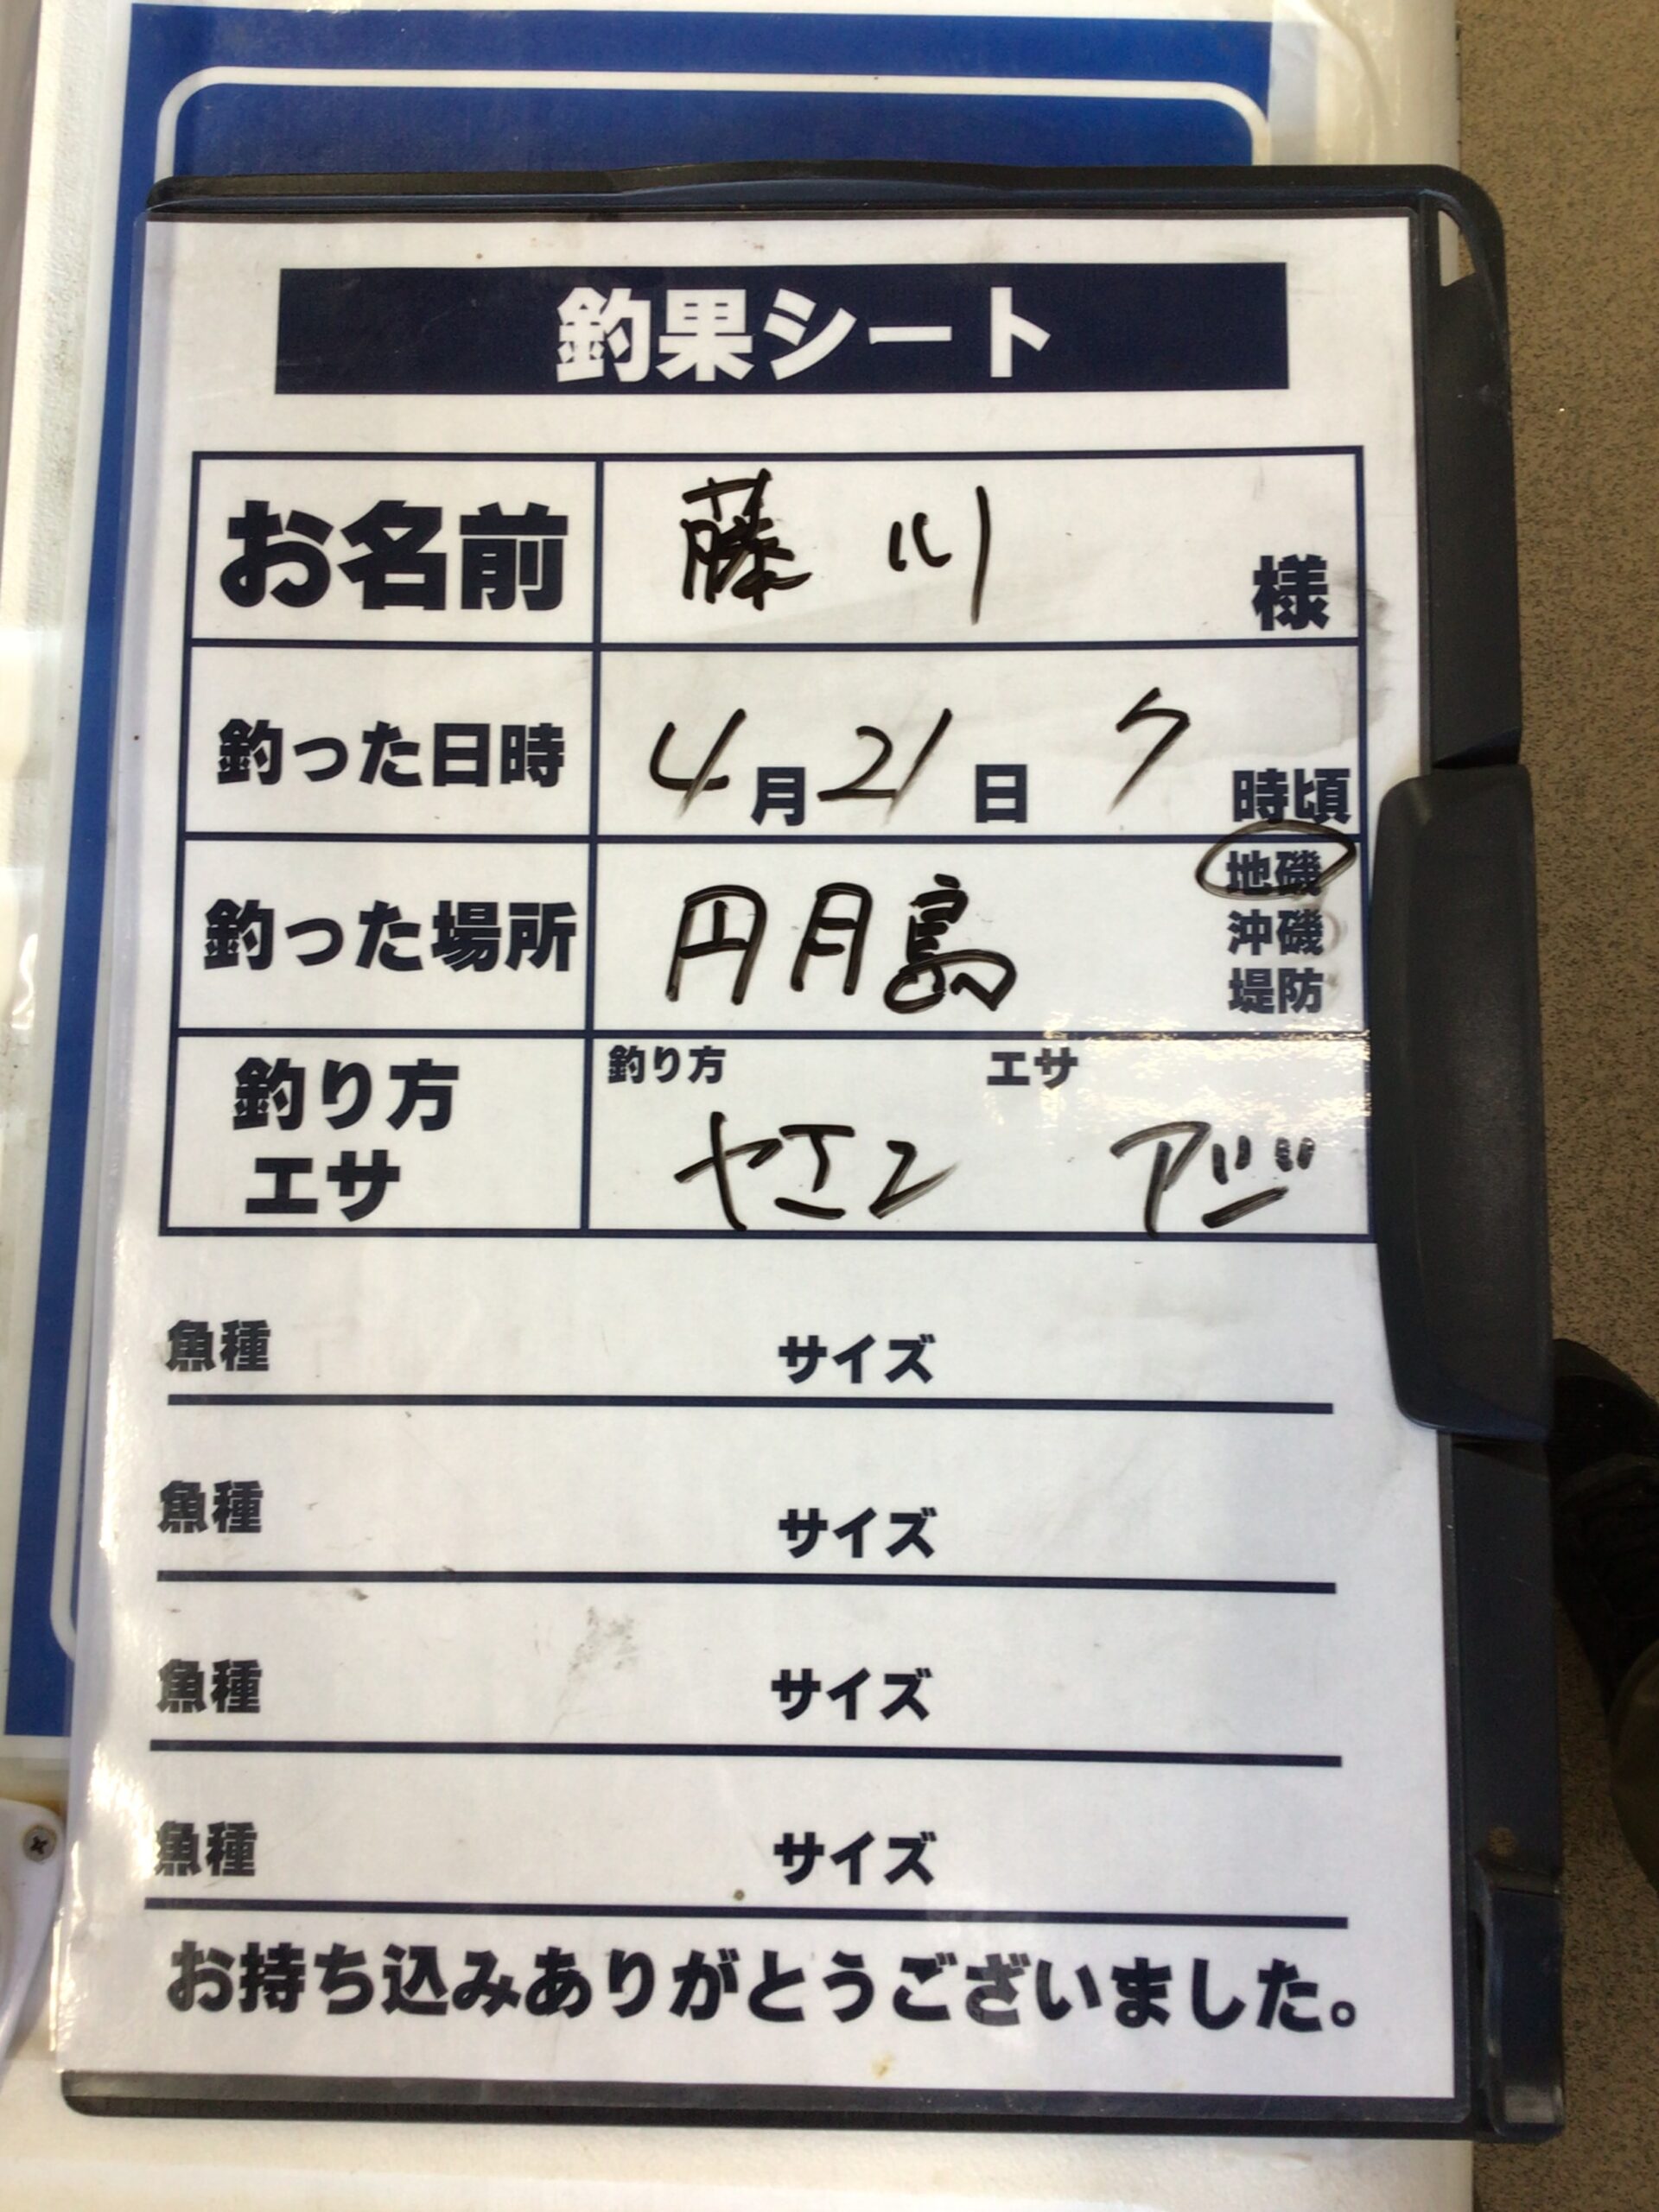 釣果シート
お名前 藤川 様
釣った日時 4月21日 7時頃
釣った場所 円月島 地磯
沖磯
堤防
釣り方 エサ
釣り方
エサ
ヤエン アジ
魚種 サイズ
魚種 サイズ
魚種 サイズ
魚種 サイズ
お持ち込みありがとうございました。